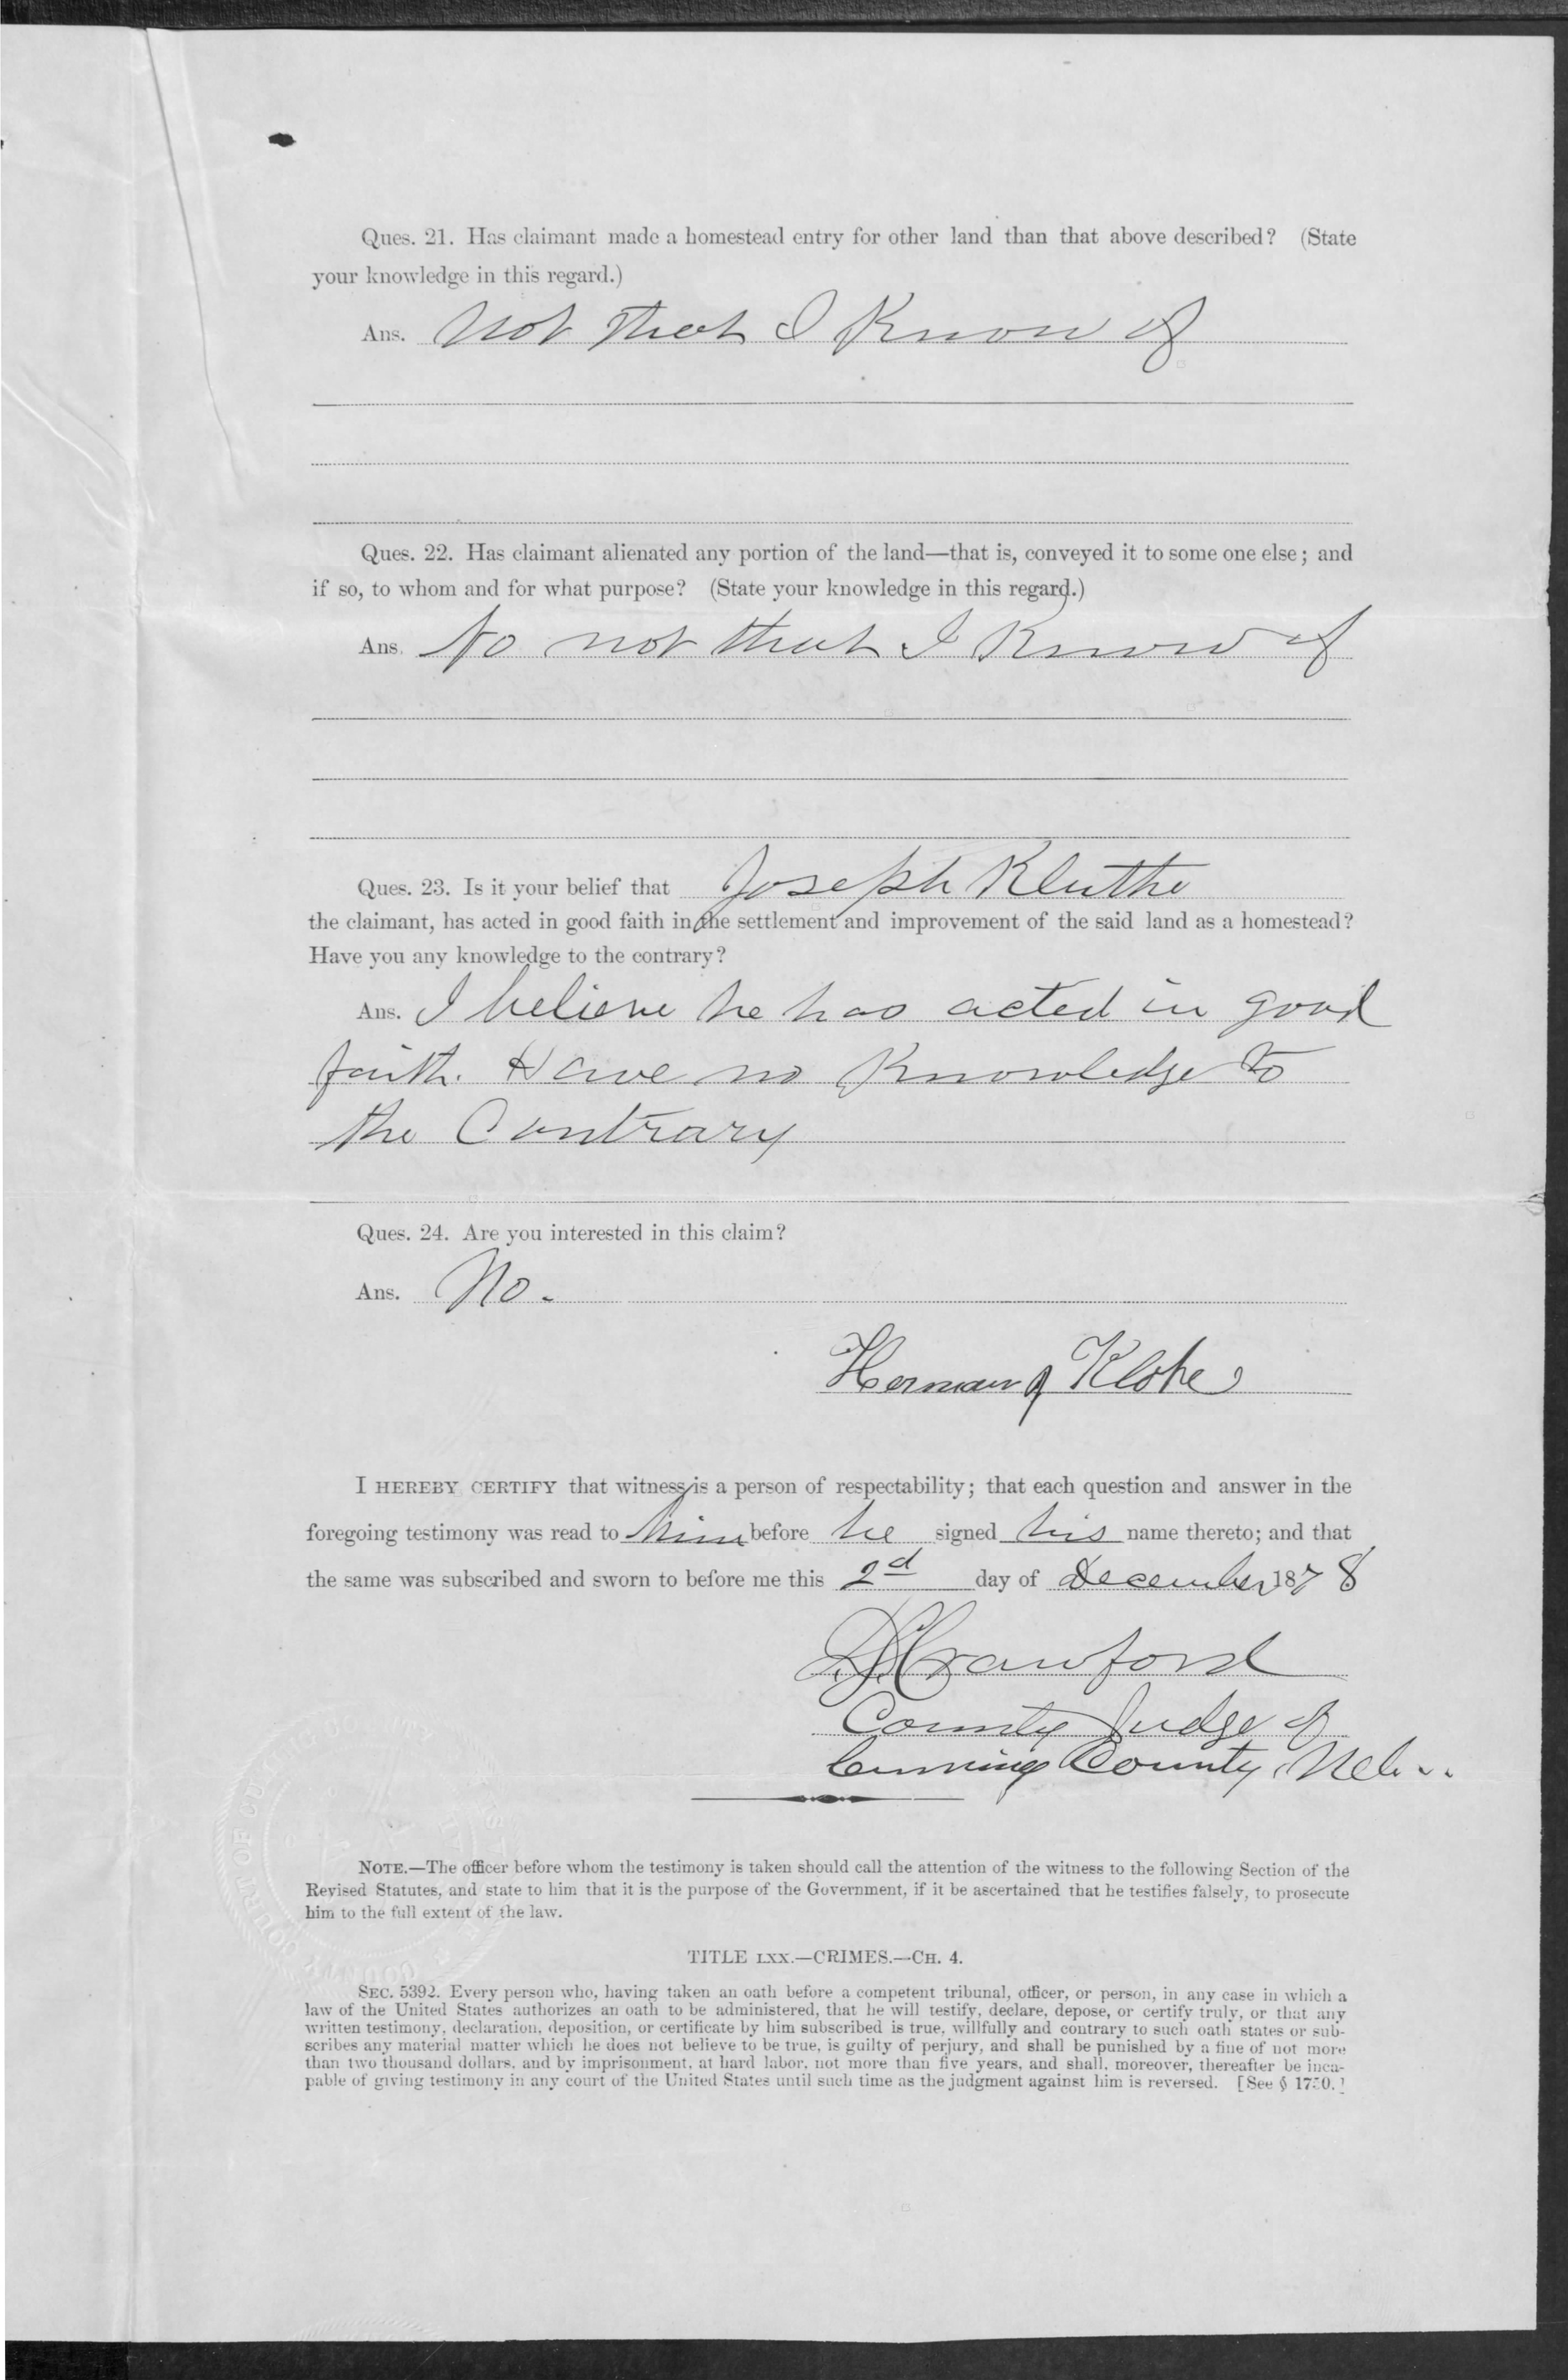 Ques. 21. Has claimant made a homestead entry for other land than that above described? (State
your knowledge in this regard.)
Ans. Not that I Know of
Ques. 22. Has claimant alienated any portion of the land—that is, conveyed it to some one else; and
if so, to whom and for what purpose? (State your knowledge in this regard.)
Ans. No not that I Know of
Ques. 23. Is it your belief that Joseph Kluthe
the claimant, has acted in good faith in the settlement and improvement of the said land as a homestead?
Have you any knowledge to the contrary?
Ans. I believe he has acted in good
faith. Have no Knowledge to
the Contrary
Ques. 24. Are you interested in this claim?
Ans. No.
Herman J Kloke
I HEREBY CERTIFY that witness is a person of respectability; that each question and answer in the
foregoing testimony was read to him before he signed his name thereto; and that
the same was subscribed and sworn to before me this 2d day of December 1878
Crawford
County Judge of
Cuming County, Neb..
NOTE.—The officer before whom the testimony is taken should call the attention of the witness to the following Section of the
Revised Statutes, and state to him that it is the purpose of the Government, if it be ascertained that he testifies falsely, to prosecute
him to the full extent of the law.
TITLE LXX.—CRIMES.—CH. 4.
SEC. 5392. Every person who, having taken an oath before a competent tribunal, officer, or person, in any case in which a
law of the United States authorizes an oath to be administered, that he will testify, declare, depose, or certify truly, or that any
written testimony, declaration, deposition, or certificate by him subscribed is true, willfully and contrary to such oath states or sub-
scribes any material matter which he does not believe to be true, is guilty of perjury, and shall be punished by a fine of not more
than two thousand dollars, and by imprisonment, at hard labor, not more than five years, and shall, moreover, thereafter be inca-
pable of giving testimony in any court of the United States until such time as the judgment against him is reversed. [See § 1750.]